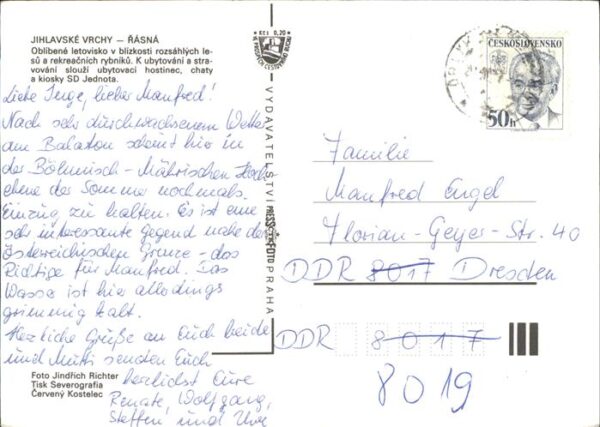 JIHLAVSKÉ VRCHY – ŘÁSNÁ
Oblíbené letovisko v blízkosti rozsáhlých le-
sů a rekreačních rybníků. K ubytování a stra-
vování slouží ubytovací hostinec, chaty
a kiosky SD Jednota.
Liebe Inge, lieber Manfred!
Nach sehr durchwachsenem Wetter
am Balaton scheint hier in
der Böhmisch - Mährischen Hoch
ebene der Sommer nochmals
Einzug zu halten. Es ist eine
sehr interessante Gegend nahe der
Österreichischen Grenze - das
Richtige für Manfred. Das
Wasser ist hier allerdings
grimmig kalt.
Herzliche Grüße an Euch beide
und Mutti senden Euch
herzlichst Eure
Renate, Wolfgang,
Steffen und Uwe
Foto Jindřich Richter
Tisk Severografia
Červený Kostelec
0,20
VYDAVATELSTVÍ PRESSFOTO PRAHA
ČESKOSLOVENSKO
50h
Familie
Manfred Engel
Florian-Geyer-Str. 40
DDR 8017 Dresden
DDR 8017
8019